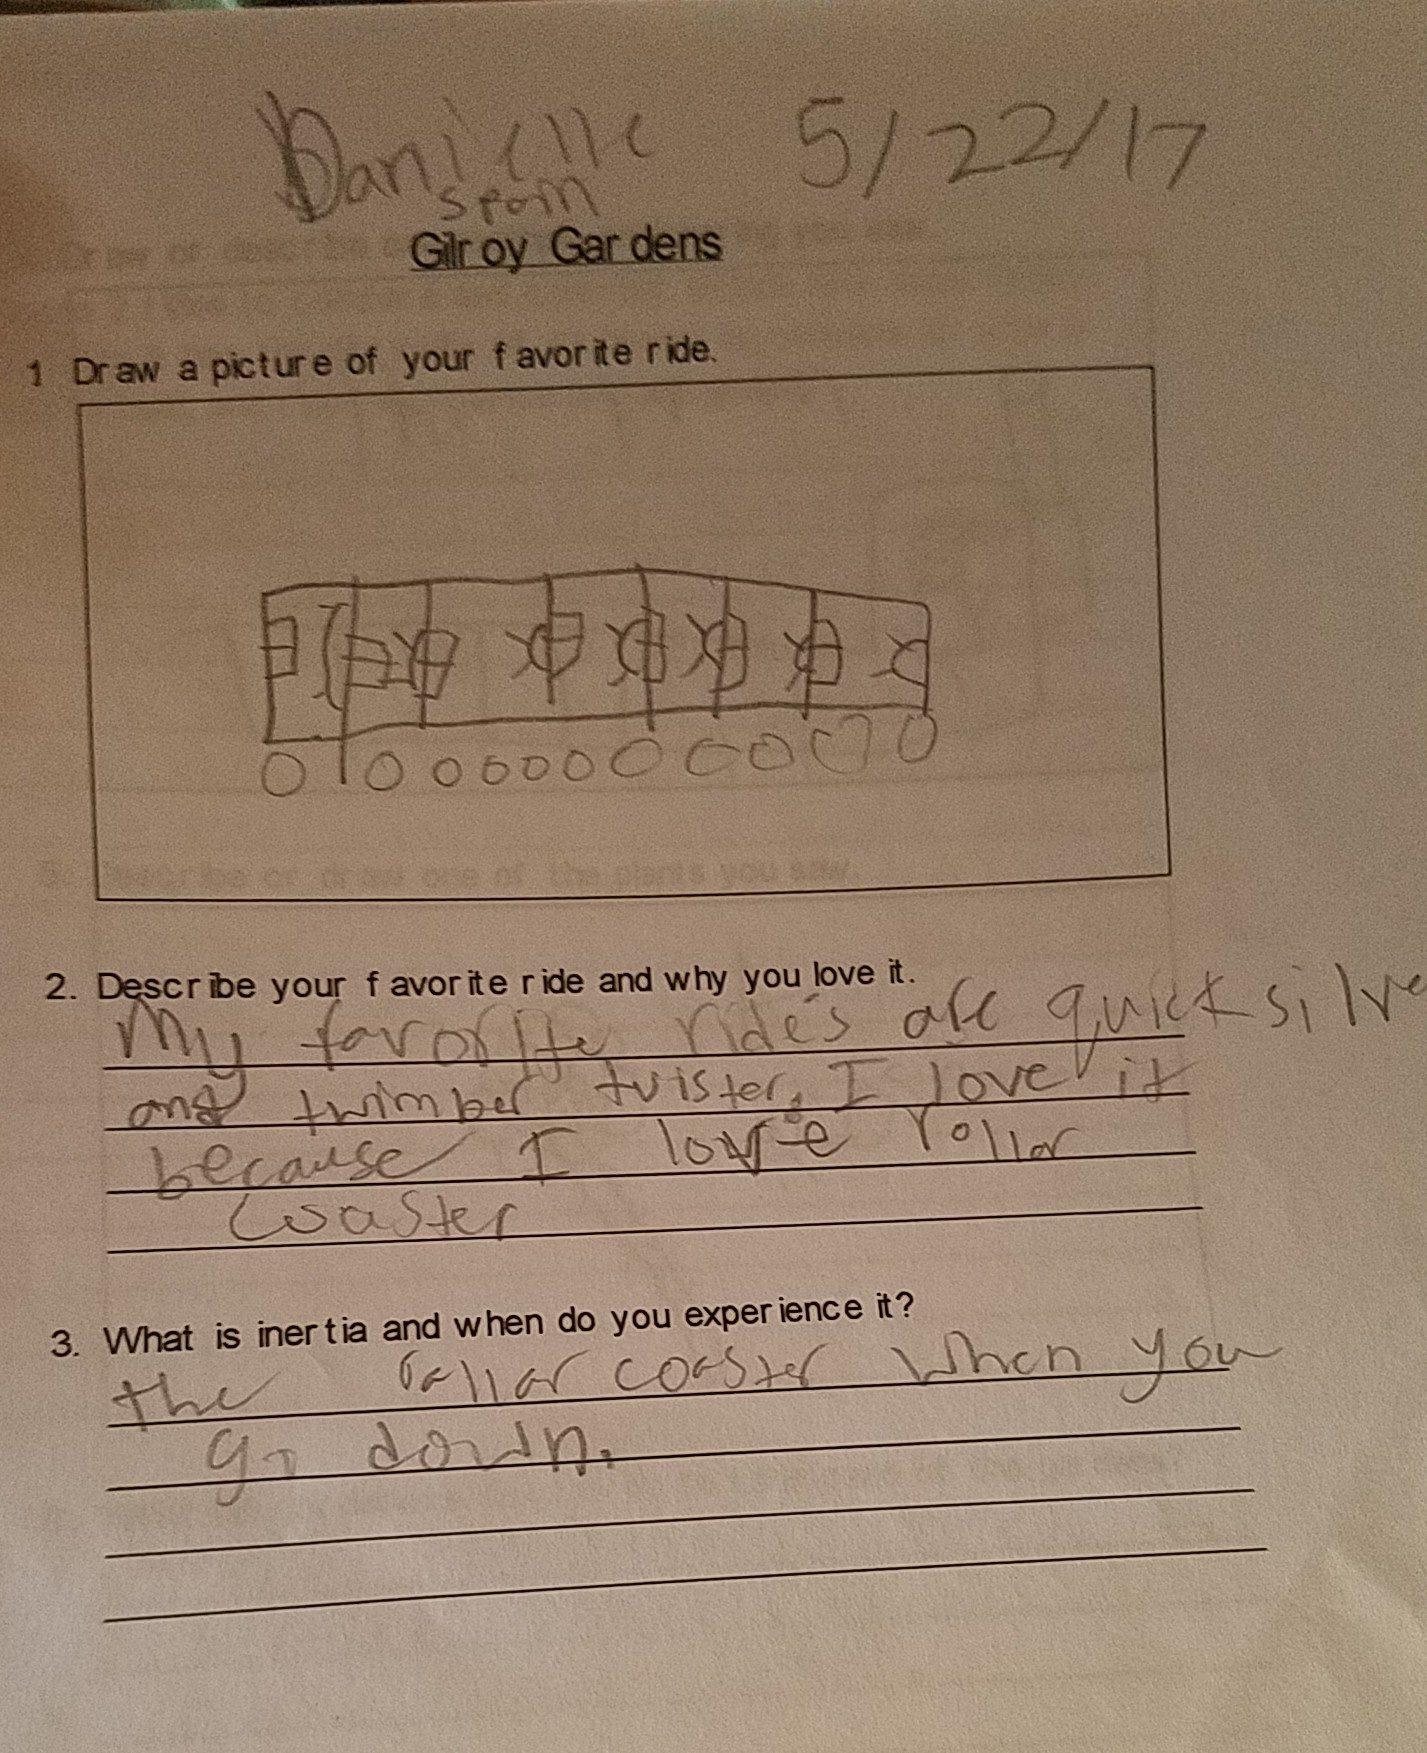 Danielle 5/22/17
Gilroy Gardens
1 Draw a picture of your favorite ride.
2. Describe your favorite ride and why you love it.
My favorite rides are quicksilve
and twimber tvister. I love it
because I love rollar
coaster
3. What is inertia and when do you experience it?
the rallar coaster when you
go down.